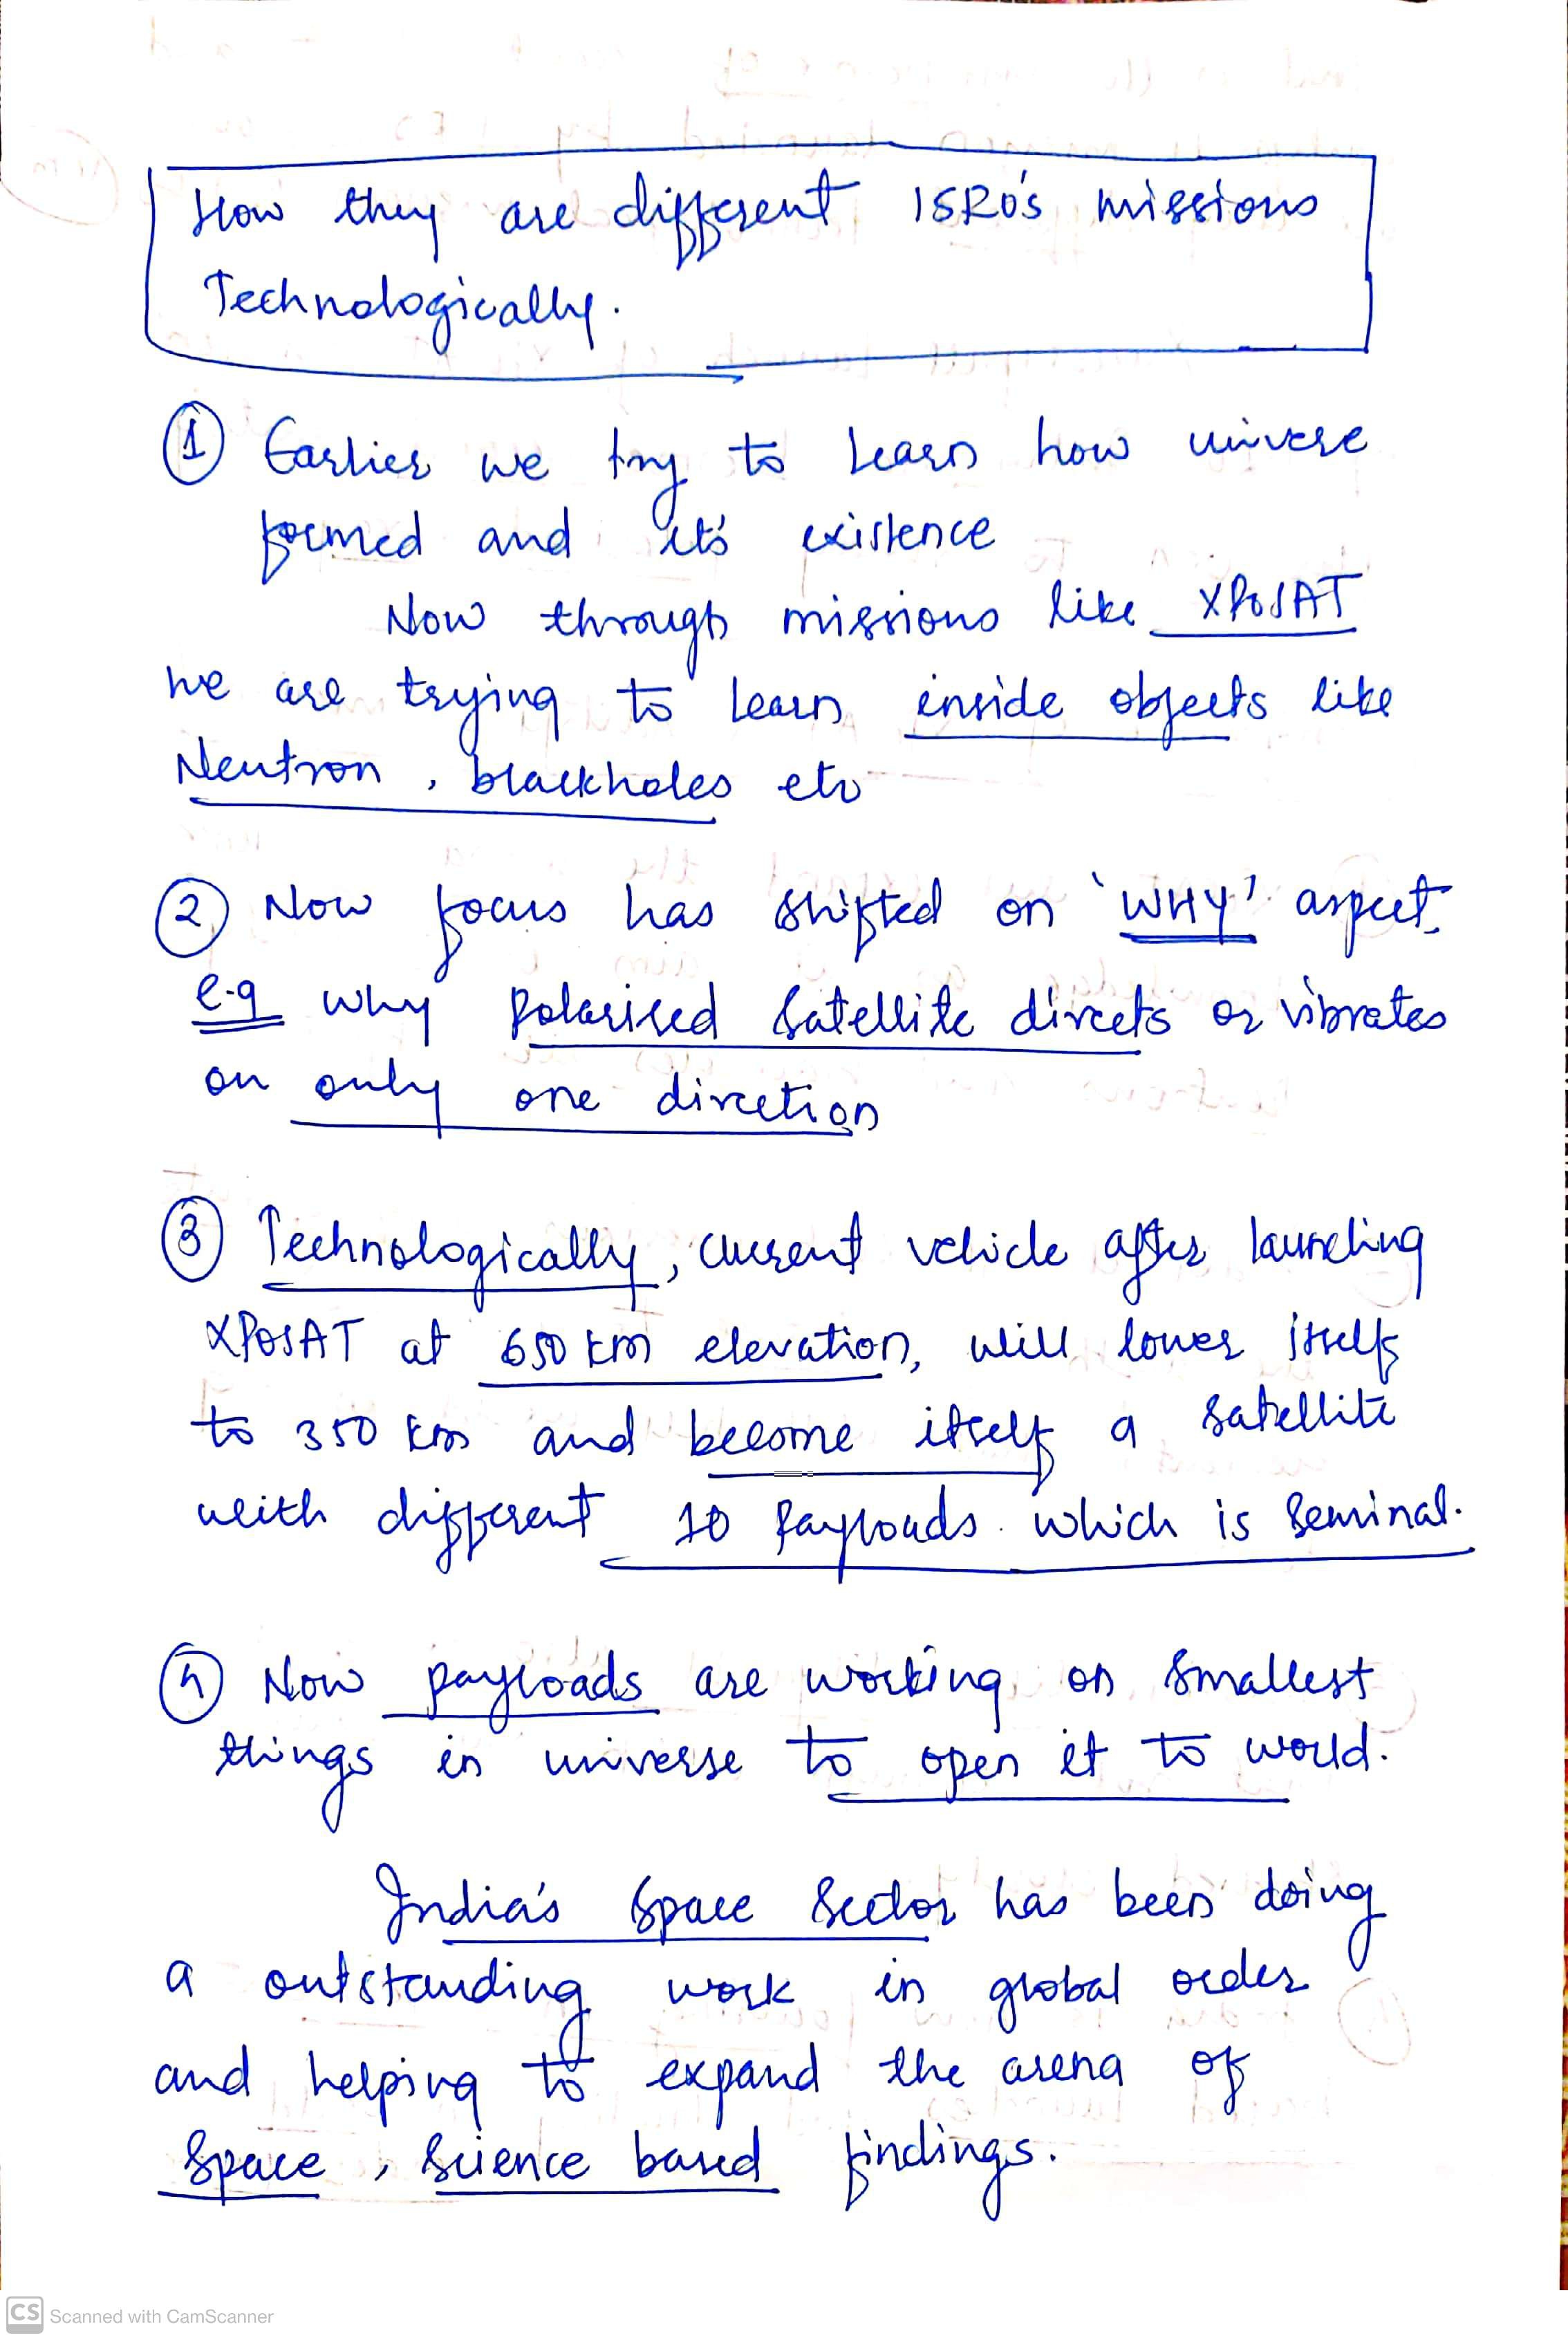 How they are different ISRO's missions
Technologically.
① Earlier we try to learn how univere
formed and it's existence
Now through missions like XPoSAT
we are trying to learn inside objects like
Neutron, blackholes etc
② Now focus has shifted on 'WHY' aspect.
e.g why polarised satellite directs or vibrates
on only one direction
③ Technologically, current vehicle after launching
XPoSAT at 650 km elevation, will lower itself
to 350 km and become itself a satellite
with different 10 payloads which is seminal.
④ Now payloads are working on smallest
things in universe to open it to world.
India's space sector has been doing
a outstanding work in global order
and helping to expand the arena of
space, science based findings.
CS Scanned with CamScanner